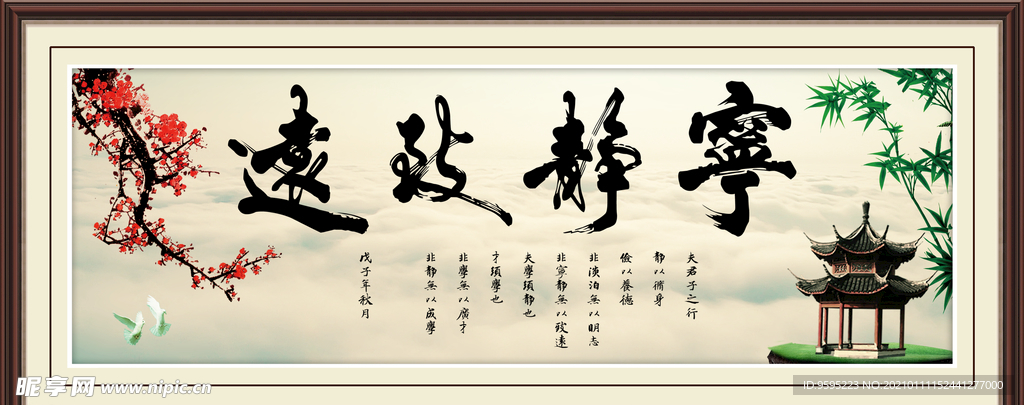 寧靜致遠
夫君子之行
靜以脩身
儉以養德
非淡泊無以明志
非寧靜無以致遠
夫學須靜也
才須學也
非學無以廣才
非靜無以成學
戊子年秋月
昵享网 www.nipic.cn
ID:9595223 NO:20210111152441277000